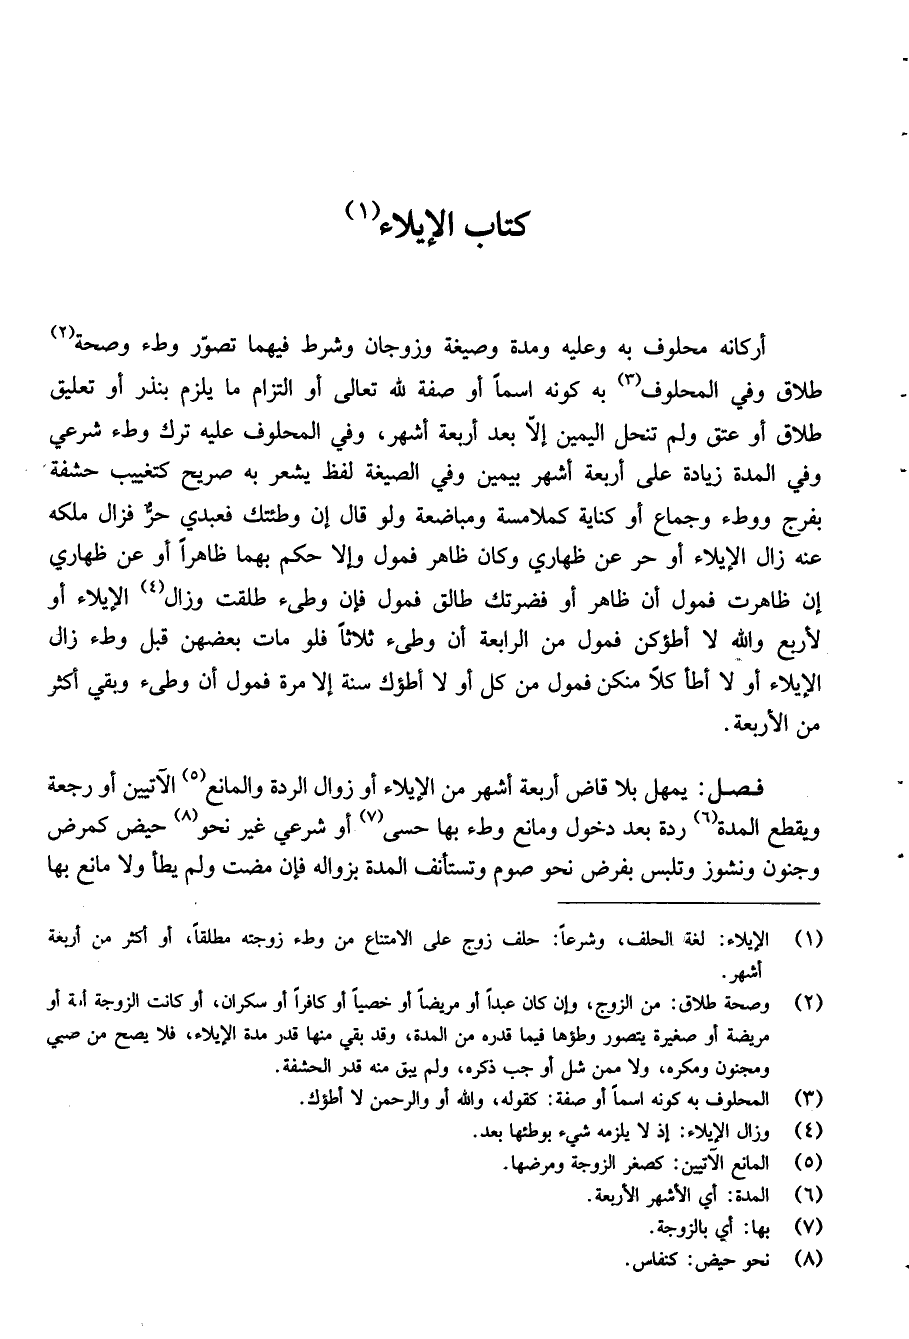 كتاب الإيلاء(١)
أركانه محلوف به وعليه ومدة وصيغة وزوجان وشرط فيهما تصوّر وطء وصحة(٢)
طلاق وفي المحلوف(٣) به كونه اسماً أو صفة لله تعالى أو التزام ما يلزم بنذر أو تعليق
طلاق أو عتق ولم تنحل اليمين إلاّ بعد أربعة أشهر، وفي المحلوف عليه ترك وطء شرعي
وفي المدة زيادة على أربعة أشهر بيمين وفي الصيغة لفظ يشعر به صريح كتغييب حشفة
بفرج ووطء وجماع أو كناية كملامسة ومباضعة ولو قال إن وطئتك فعبدي حرٌّ فزال ملكه
عنه زال الإيلاء أو حر عن ظهاري وكان ظاهر فمول وإلا حكم بهما ظاهراً أو عن ظهاري
إن ظاهرت فمول أن ظاهر أو فضرتك طالق فمول فإن وطىء طلقت وزال(٤) الإيلاء أو
لأربع والله لا أطؤكن فمول من الرابعة أن وطىء ثلاثاً فلو مات بعضهن قبل وطء زال
الإيلاء أو لا أطأ كلاً منكن فمول من كل أو لا أطؤك سنة إلا مرة فمول أن وطىء وبقي أكثر
من الأربعة.
فـصـل: يمهل بلا قاض أربعة أشهر من الإيلاء أو زوال الردة والمانع(٥) الآتيين أو رجعة
ويقطع المدة(٦) ردة بعد دخول ومانع وطء بها حسى(٧) أو شرعي غير نحو(٨) حيض كمرض
وجنون ونشوز وتلبس بفرض نحو صوم وتستأنف المدة بزواله فإن مضت ولم يطأ ولا مانع بها
(١) الإيلاء: لغة الحلف، وشرعاً: حلف زوج على الامتناع من وطء زوجته مطلقاً، أو أكثر من أربعة
أشهر.
(٢) وصحة طلاق: من الزوج، وإن كان عبداً أو مريضاً أو خصياً أو كافراً أو سكران، أو كانت الزوجة أمة أو
مريضة أو صغيرة يتصور وطؤها فيما قدره من المدة، وقد بقي منها قدر مدة الإيلاء، فلا يصح من صبي
ومجنون ومكره، ولا ممن شل أو جب ذكره، ولم يبق منه قدر الحشفة.
(٣) المحلوف به كونه اسماً أو صفة: كقوله، والله أو والرحمن لا أطؤك.
(٤) وزال الإيلاء: إذ لا يلزمه شيء بوطئها بعد.
(٥) المانع الآتيين: كصغر الزوجة ومرضها.
(٦) المدة: أي الأشهر الأربعة.
(٧) بها: أي بالزوجة.
(٨) نحو حيض: كنفاس.